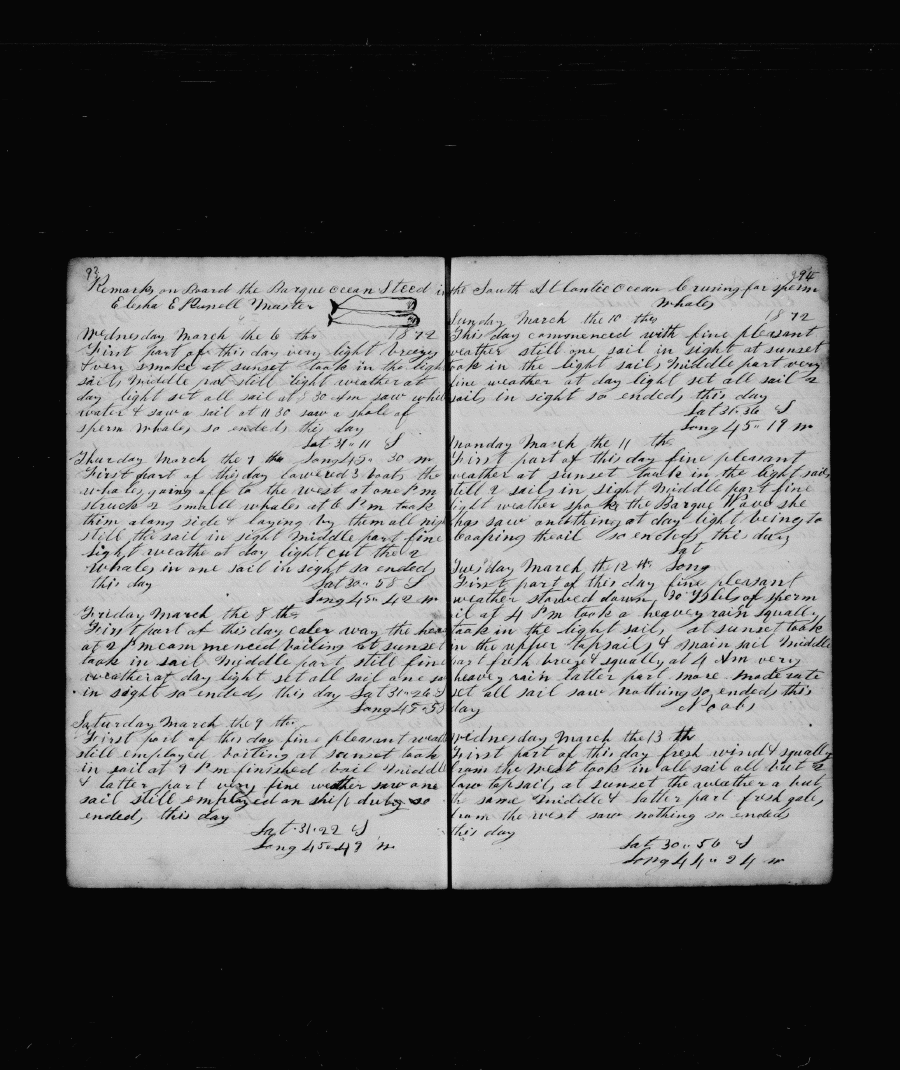 93
Remarks on Board the Barque Ocean Steed in
Elisha E Russell Master
Wednesday March the 6 th 1872
First part of this day very light breezes
& very smoke at sunset took in the light
sails Middle part still light weather at
day light set all sail at 8 30 Am saw whit
water & saw a sail at 11 30 saw a shole of
sperm whales so ended this day
Lat 31 " 11 S
Thursday March the 7 th Long 45 " 30 w
First part of this day lowered 3 boats the
whales going off to the west at one Pm
struck 2 small whales at 6 Pm took
them along side & laying by them all nigh
still the sail in sight Middle part fine
light weathe at day light cut the 2
whales in one sail in sight so ended
this day Lat 30 " 58 S
Long 45 " 42 w
Friday March the 8 th
First part of this day way the
at 2 Pm commenced boiling at sunset
took in sail Middle part still fine
weather at day light set all sail one sa
in sight so ended this day Lat 31 " 26 S
Long 45 " 55
Saturday March the 9 th
First part of this day fine pleasant weath
still employed boiling at sunset took
in sail at 9 Pm finished boil Middle
& latter part very fine weather saw one
sail still employed on ship duty so
ended this day
Lat 31 " 22 S
Long 45 " 49 w
94
the South Atlantic Ocean Crusing for sperm
Whales
Sunday March the 10 th 1872
This day commenced with fine pleasant
weather still one sail in sight at sunset
took in the light sails Middle part very
fine weather at day light set all sail 2
sails in sight so ended this day
Lat 31 " 36 S
Long 45 " 19 w
Monday March the 11 th
First part of this day fine pleasant
weather at sunset took in the light sails
still 2 sails in sight Middle part fine
light weather spoke the Barque Wave she
has saw nothing at day light being to
Coopering the oil so ended this day
Lat
Tuesday March the 12 th Long
First part of this day fine pleasant
weather stowed down 30 Bbls of sperm
oil at 4 Pm took a heavey rain squally
took in the light sail, at sunset took
in the upper topsails & main sail Middle
part fresh breeze & squally at 4 Am very
heavey rain latter part more moderate
set all sail saw nothing so ended this
day No obs
Wednesday March the 13 th
First part of this day fresh wind & squally
from the West took in all sail all but 2
low topsails at sunset the weather a but
the same Middle & latter part fresh gale
from the west saw nothing so ended
this day
Lat 30 " 56 S
Long 44 " 24 w